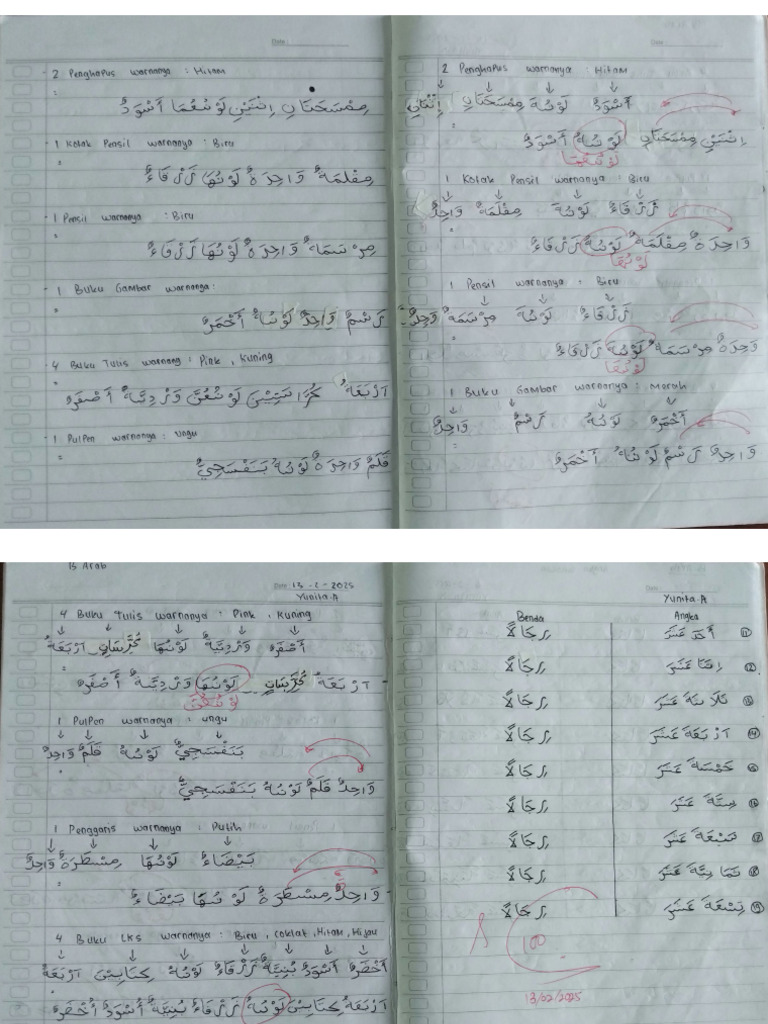 Date :
2 Penghapus warnanya : Hitam
مِمْسَحَتَانِ اِثْنَتَيْنِ لَوْنُهُمَا أَسْوَدُ
1 Kotak Pensil warnanya : Biru
مِقْلَمَةٌ وَاحِدَةٌ لَوْنُهَا زَرْقَاءُ
1 Pensil warnanya : Biru
مِرْسَمَةٌ وَاحِدَةٌ لَوْنُهَا زَرْقَاءُ
1 Buku Gambar warnanya :
رَسْمٌ وَاحِدٌ لَوْنُهُ أَحْمَرُ
4 Buku Tulis warnanya : Pink , Kuning
أَرْبَعَةُ لَوْنُهُنَّ وَرْدِيَّةٌ أَصْفَرُ
1 Pulpen warnanya : ungu
قَلَمٌ وَاحِدَةٌ لَوْنُهُ بَنَفْسَجِيٌّ
Date :
2 Penghapus warnanya : Hitam
أَسْوَدُ لَوْنُهُ مِمْسَحَتَانِ اِثْنَانِ
اِثْنَتَيْنِ مِمْسَحَتَانِ لَوْنُهُ أَسْوَدُ
لَوْنُهُمَا
1 Kotak Pensil warnanya : Biru
زَرْقَاءُ لَوْنُهُ مِقْلَمَةٌ وَاحِدٌ
وَاحِدَةٌ مِقْلَمَةٌ لَوْنُهُ زَرْقَاءُ
لَوْنُهَا
1 Pensil warnanya : Biru
زَرْقَاءُ لَوْنُهُ مِرْسَمَةٌ وَاحِدٌ
وَحِدَةٌ مِرْسَمَةٌ لَوْنُهُ زَرْقَاءُ
لَوْنُهَا
1 Buku Gambar warnanya : Merah
أَحْمَرُ لَوْنُهُ رَسْمٌ وَاحِدٌ
وَاحِدٌ رَسْمٌ لَوْنُهُ أَحْمَرُ
B Arab
Date : 13 - 2 - 2025
Yunita.A
4 Buku Tulis warnanya : Pink , Kuning
أَصْفَرُ وَرْدِيَّةٌ لَوْنُهَا كُرَّاسَتَانِ أَرْبَعَةٌ
أَرْبَعَةٌ كُرَّاسَتَانِ لَوْنُهَا وَرْدِيَّةٌ أَصْفَرُ
لَوْنُهُنَّ
1 Pulpen warnanya : ungu
بَنَفْسَجِيٌّ لَوْنُهُ قَلَمٌ وَاحِدٌ
وَاحِدٌ قَلَمٌ لَوْنُهُ بَنَفْسَجِيٌّ
1 Penggaris warnanya : Putih
بَيْضَاءُ لَوْنُهَا مِسْطَرَةٌ وَاحِدٌ
وَاحِدٌ مِسْطَرَةٌ لَوْنُهَا بَيْضَاءُ
4 Buku LKS warnanya : Biru , coklat , Hitam , Hijau
أَخْضَرُ أَسْوَدُ بُنِيَّةٌ زَرْقَاءُ لَوْنُهُ أَرْبَعَةٌ
أَرْبَعَةٌ لَوْنُهُ زَرْقَاءُ بُنِيَّةٌ أَسْوَدُ أَخْضَرُ
Date :
Yunita.A
Benda Angka
⑪ أَحَدَ عَشَرَ رِجَالًا
⑫ اِثْنَا عَشَرَ رِجَالًا
⑬ ثَلَاثَةَ عَشَرَ رِجَالًا
⑭ أَرْبَعَةَ عَشَرَ رِجَالًا
⑮ خَمْسَةَ عَشَرَ رِجَالًا
⑯ سِتَّةَ عَشَرَ رِجَالًا
⑰ سَبْعَةَ عَشَرَ رِجَالًا
⑱ ثَمَانِيَةَ عَشَرَ رِجَالًا
⑲ تِسْعَةَ عَشَرَ رِجَالًا
100
13/02/2025